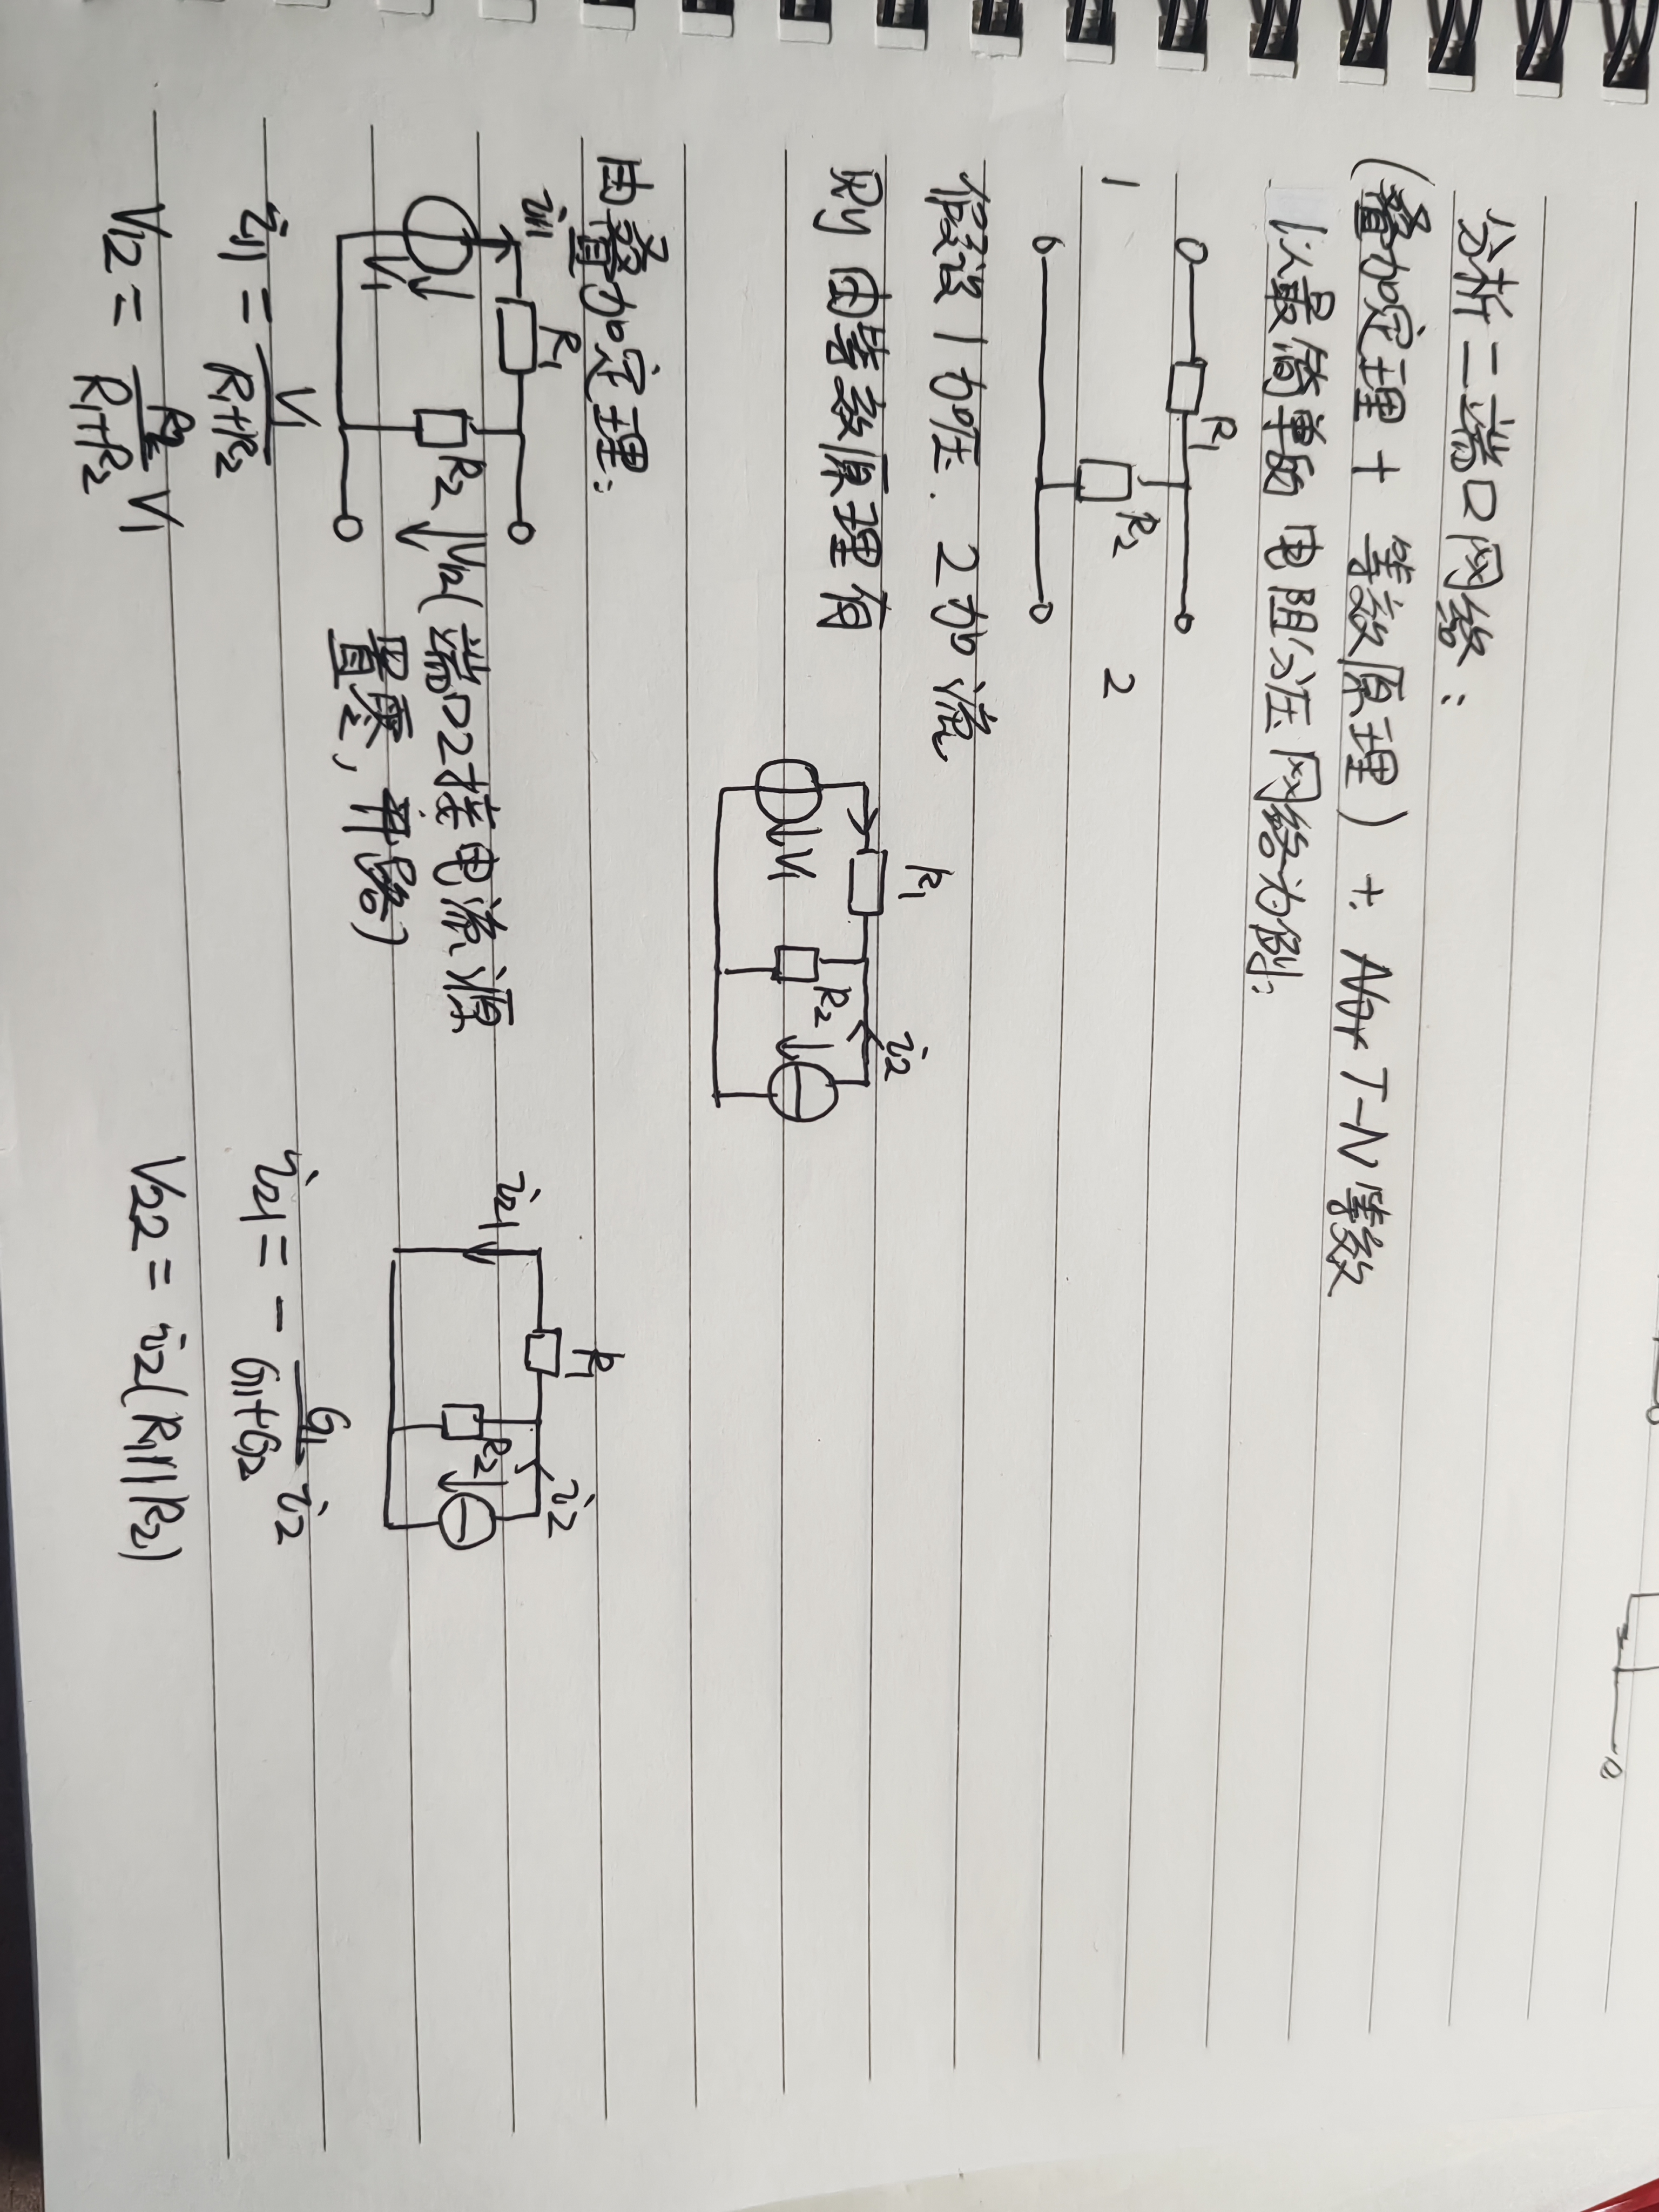 分析二端口网络：
(叠加定理 + 等效原理) + T-N等效
以最简单的电阻分压网络为例：
R1
R2
1 2
假设1加压．2加流
R1
i2
则由等效原理有
R2
V1
由叠加定理：
i11 R1
R2
V1
V12(端口2接电流源
置零，开路)
R1
i2
i21
R2
i11 = V1/(R1+R2)
V12 = R2/(R1+R2) V1
i21 = - G1/(G1+G2) i2
V22 = i2(R1||R2)